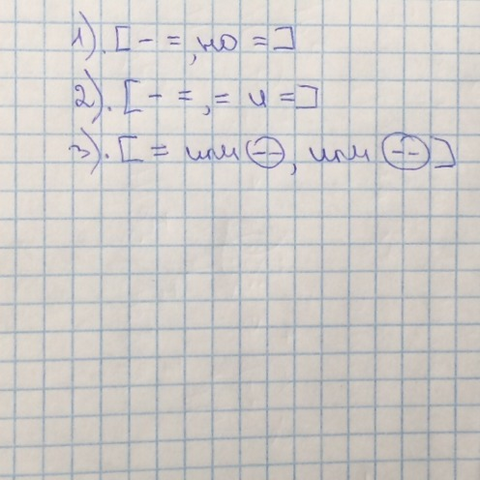 1). [ - =, но = ]
2). [ - =, = и = ]
3). [ = или (--), или (--) ]